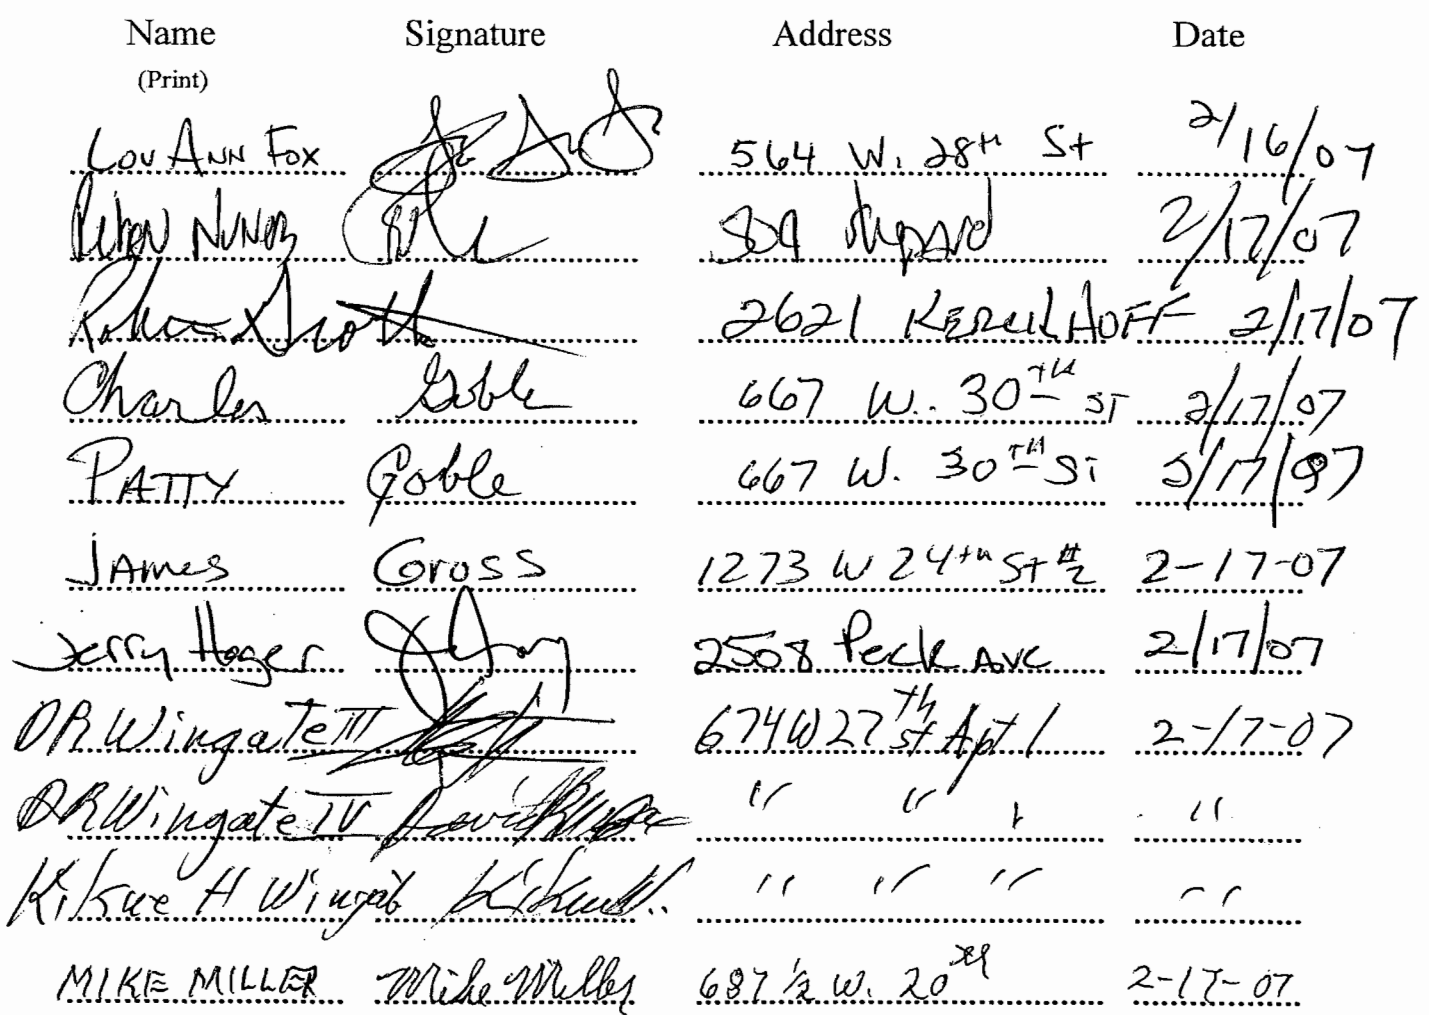 Name Signature Address Date
(Print)
Lou Ann Fox 564 W. 28th St 2/16/07
Ruben Nunez 809 Shepard 2/17/07
Scott 2621 KERCKHOFF 2/17/07
Charles Goble 667 W. 30TH ST 2/17/07
PATTY Goble 667 W. 30TH ST 2/17/07
JAMES Gross 1273 W 24th St #2 2-17-07
Jerry Hager 2508 Peck Ave 2/17/07
DR Wingate III 674 W 27th st Apt 1 2-17-07
DR Wingate IV " " " "
Kikue H Wingate " " " "
MIKE MILLER Mike Miller 687 1/2 W. 20th 2-17-07